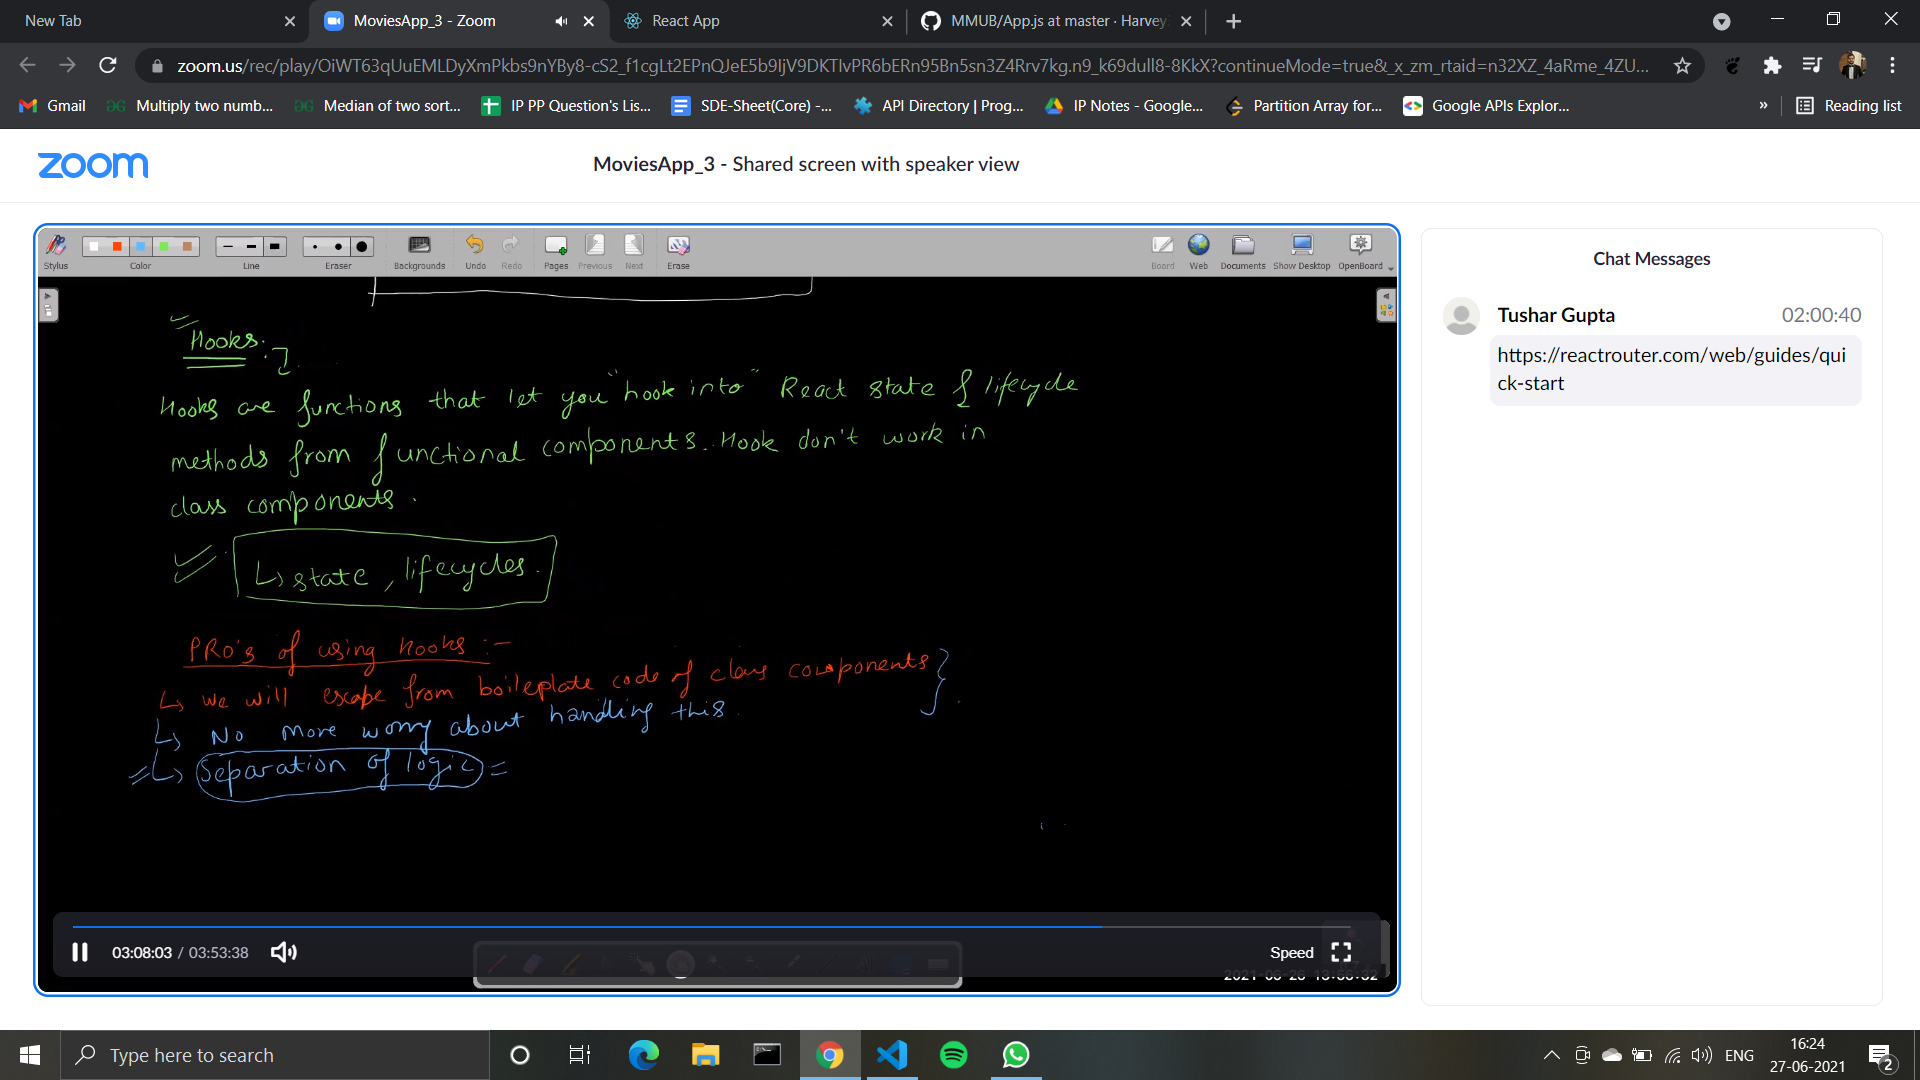 New Tab
MoviesApp_3 - Zoom
React App
MMUB/App.js at master · Harvey
zoom.us/rec/play/OiWT63qUuEMLDyXmPkbs9nYBy8-cS2_f1cgLt2EPnQJeE5b9IjV9DKTlvPR6bERn95Bn5sn3Z4Rrv7kg.n9_k69dull8-8KkX?continueMode=true&_x_zm_rtaid=n32XZ_4aRme_4ZU...
Gmail
Multiply two numb...
Median of two sort...
IP PP Question's Lis...
SDE-Sheet(Core) -...
API Directory | Prog...
IP Notes - Google...
Partition Array for...
Google APIs Explor...
» Reading list
zoom
MoviesApp_3 - Shared screen with speaker view
Stylus
Color
Line
Eraser
Backgrounds
Undo
Redo
Pages
Previous
Next
Erase
Board
Web
Documents
Show Desktop
OpenBoard
Hooks.
Hooks are functions that let you "hook into" React state & lifecycle
methods from functional components. Hook don't work in
class components.
↳ state, lifecycles.
PRO's of using Hooks :-
↳ we will escape from boileplate code of class components
↳ No more worry about handling this.
↳ Separation of logic =
03:08:03 / 03:53:38
Speed
2021-06-26 13:56:32
Chat Messages
Tushar Gupta 02:00:40
https://reactrouter.com/web/guides/qui
ck-start
Type here to search
ENG
16:24
27-06-2021
2